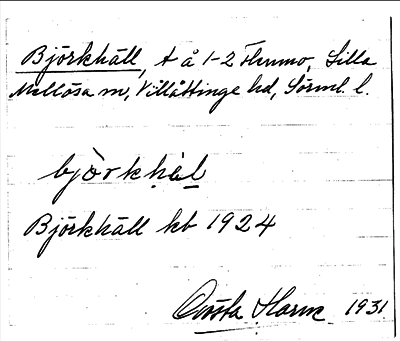 Björkhäll, t å 1-2 Flunmo, Lilla
Mellösa sn, Villåttinge hd, Sörml. l.
björkhäl
Björkhäll kb 1924
Gösta Harnz 1931